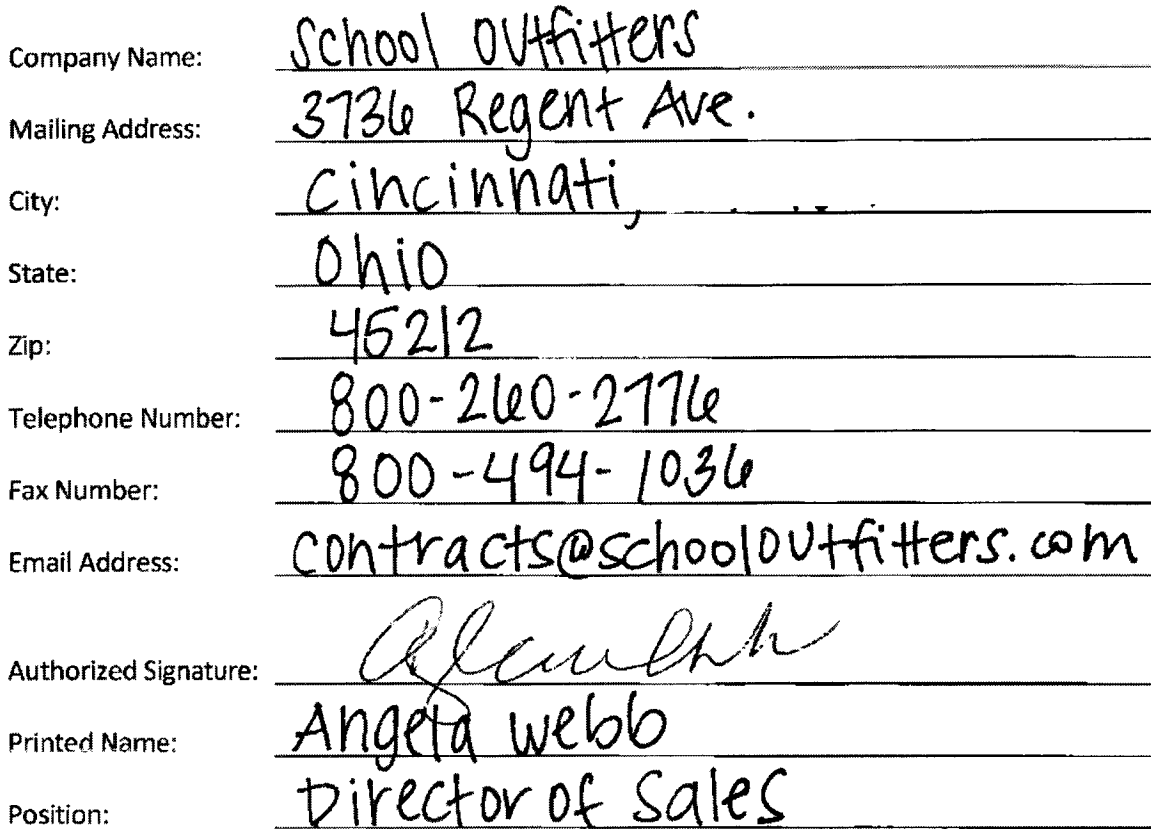 Company Name: School Outfitters
Mailing Address: 3736 Regent Ave.
City: Cincinnati,
State: Ohio
Zip: 45212
Telephone Number: 800-260-2776
Fax Number: 800-494-1036
Email Address: contracts@schooloutfitters.com
Authorized Signature:
Printed Name: Angela Webb
Position: Director of Sales